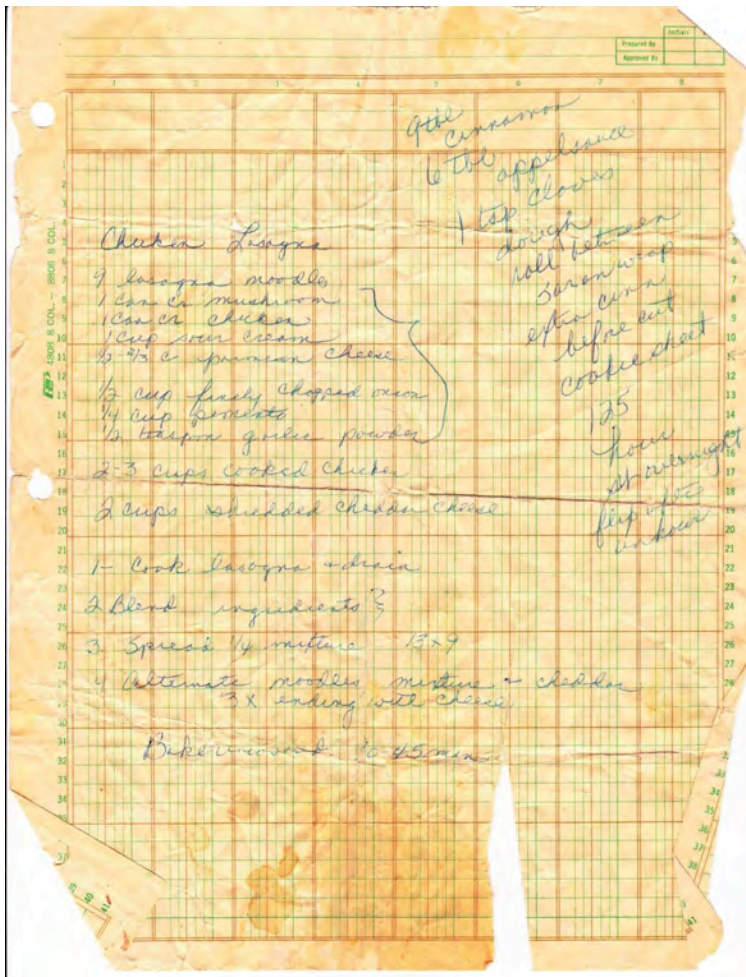 Initials
Prepared By
Approved By
1 2 3 4 5 6 7 8
4808 8 COL. — 8808 8 COL.
9 tbl
cinnamon
6 tbl appelsauce
1 tsp cloves
dough
roll between
saran wrap
extra cinn
before cut
cookie sheet
125
hour
sit overnight
flip after
an hour
Chicken Lasagna
9 lasagna noodles
1 can cr mushroom
1 can cr chicken
1 cup sour cream
1/2-2/3 c parmean cheese
1/2 cup finely chopped onion
1/4 cup pimento
1/2 teaspon garlic powder
2-3 cups cooked chicken
2 cups shredded cheddar cheese
1- Cook lasagna + drain
2 Blend ingredients }
3. Spread 1/4 mixture 13x9
4 Alternate noodles mixture + cheddar
3x ending with cheese
Bake uncovered 45 min